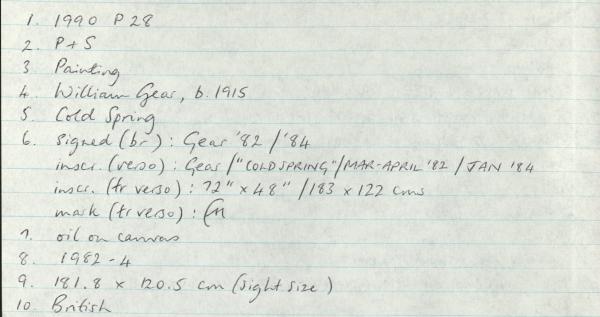 1. 1990 P 28
2. P + S
3 Painting
4. William Gear, b. 1915
5. Cold Spring
6. Signed (br) : Gear '82 / '84
inscr. (verso) : Gear / "COLD SPRING" / MAR-APRIL '82 / JAN '84
inscr. (tr verso) : 72" x 48" / 183 x 122 cms
mark (tr verso) :
7. oil on canvas
8. 1982-4
9. 181.8 x 120.5 cm (sight size)
10. British